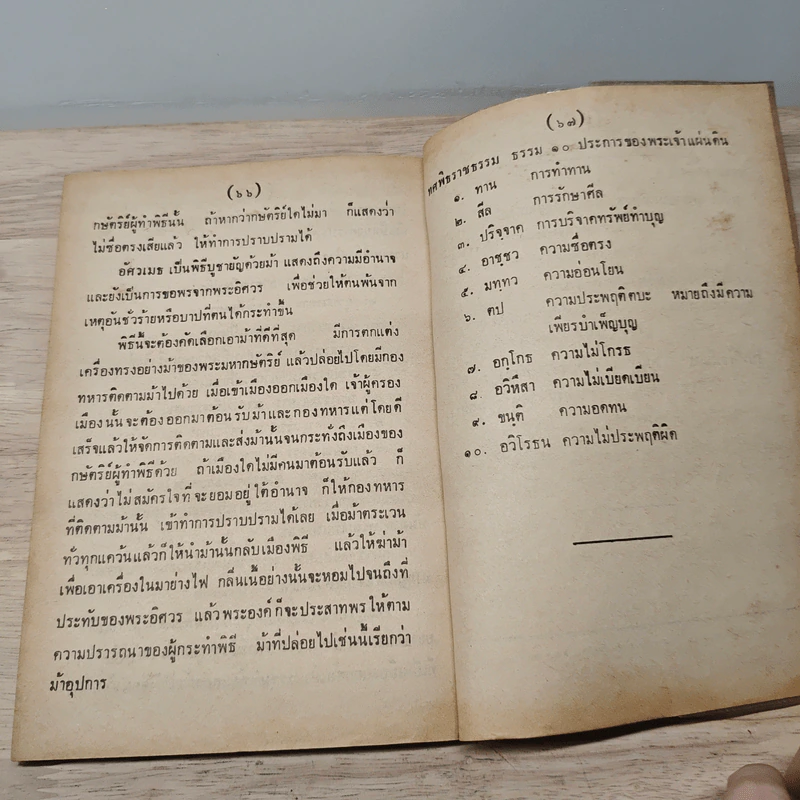 (๖๖)
กษัตริย์ผู้ทำพิธีนั้น ถ้าหากว่ากษัตริย์ใดไม่มา ก็แสดงว่า
ไม่ซื่อตรงเสียแล้ว ให้ทำการปราบปรามได้
อัศวเมธ เป็นพิธีบูชายัญด้วยม้า แสดงถึงความมีอำนาจ
และยังเป็นการขอพรจากพระอิศวร เพื่อช่วยให้ตนพ้นจาก
เหตุอันชั่วร้ายหรือบาปที่ตนได้กระทำขึ้น
พิธีนี้จะต้องคัดเลือกเอาม้าที่ดีที่สุด มีการตกแต่ง
เครื่องทรงอย่างม้าของพระมหากษัตริย์ แล้วปล่อยไปโดยมีกอง
ทหารติดตามม้าไปด้วย เมื่อเข้าเมืองออกเมืองใด เจ้าผู้ครอง
เมืองนั้นจะต้องออกมาต้อนรับม้าและกองทหารแต่โดยดี
เสร็จแล้วให้จัดการติดตามและส่งม้านั้นจนกระทั่งถึงเมืองของ
กษัตริย์ผู้ทำพิธีด้วย ถ้าเมืองใดไม่มีคนมาต้อนรับแล้ว ก็
แสดงว่าไม่สมัครใจที่จะยอมอยู่ใต้อำนาจ ก็ให้กองทหาร
ที่ติดตามม้านั้น เข้าทำการปราบปรามได้เลย เมื่อม้าตระเวน
ทั่วทุกแคว้นแล้วก็ให้นำม้านั้นกลับเมืองพิธี แล้วให้ฆ่าม้า
เพื่อเอาเครื่องในมาย่างไฟ กลิ่นเนื้อย่างนั้นจะหอมไปจนถึงที่
ประทับของพระอิศวร แล้วพระองค์ก็จะประสาทพรให้ตาม
ความปรารถนาของผู้กระทำพิธี ม้าที่ปล่อยไปเช่นนี้เรียกว่า
ม้าอุปการ
(๖๗)
ทศพิธราชธรรม ธรรม ๑๐ ประการของพระเจ้าแผ่นดิน
๑. ทาน การทำทาน
๒. สีล การรักษาศีล
๓. ปริจฺจาค การบริจาคทรัพย์ทำบุญ
๔. อาชฺชว ความซื่อตรง
๕. มทฺทว ความอ่อนโยน
๖. ตป ความประพฤติตบะ หมายถึงมีความ
เพียรบำเพ็ญบุญ
๗. อกฺโกธ ความไม่โกรธ
๘. อวิหึสา ความไม่เบียดเบียน
๙. ขนฺติ ความอดทน
๑๐. อวิโรธน ความไม่ประพฤติผิด